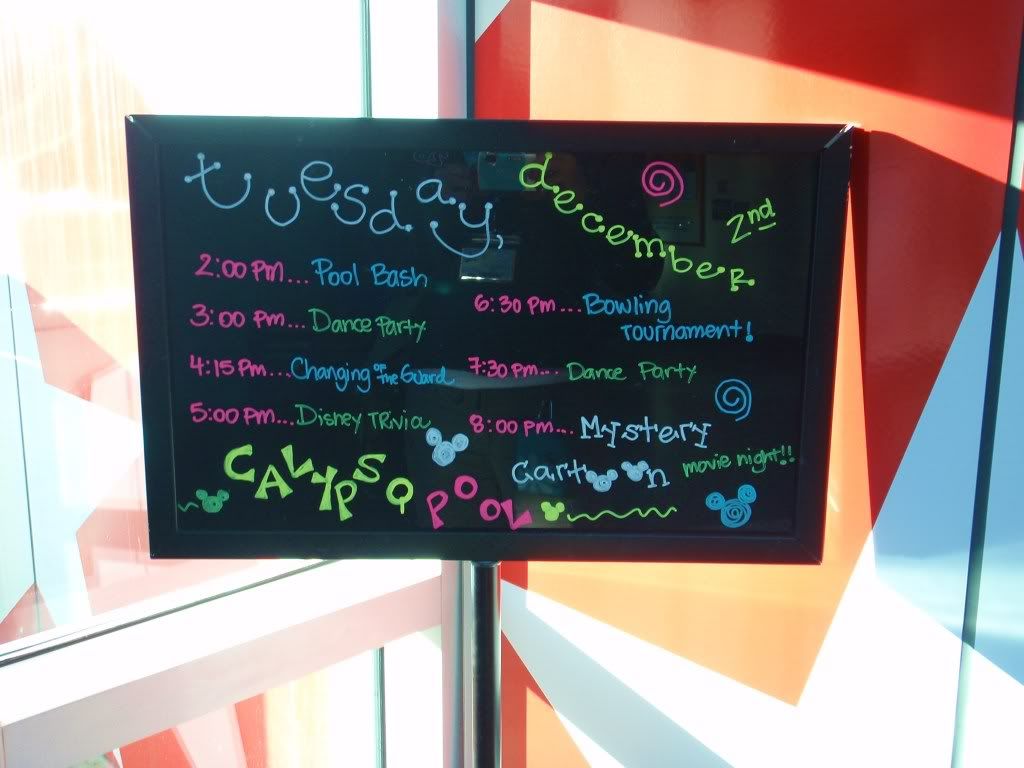 tuesday, december 2nd
2:00 PM...Pool Bash
3:00 PM...Dance Party
4:15 PM...Changing OF The Guard
5:00 PM...Disney TRiVia
6:30 PM...Bowling
TouRnament!
7:30 PM... Dance Party
8:00 PM... MysteRy
Cartoon movie night!!
CALYPSO POOL